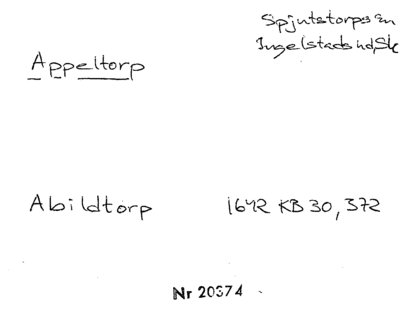 Spjutstorps sn
Ingelstads hd, Sk
Appeltorp
Abildtorp 1642 KB 30, 372
Nr 20374